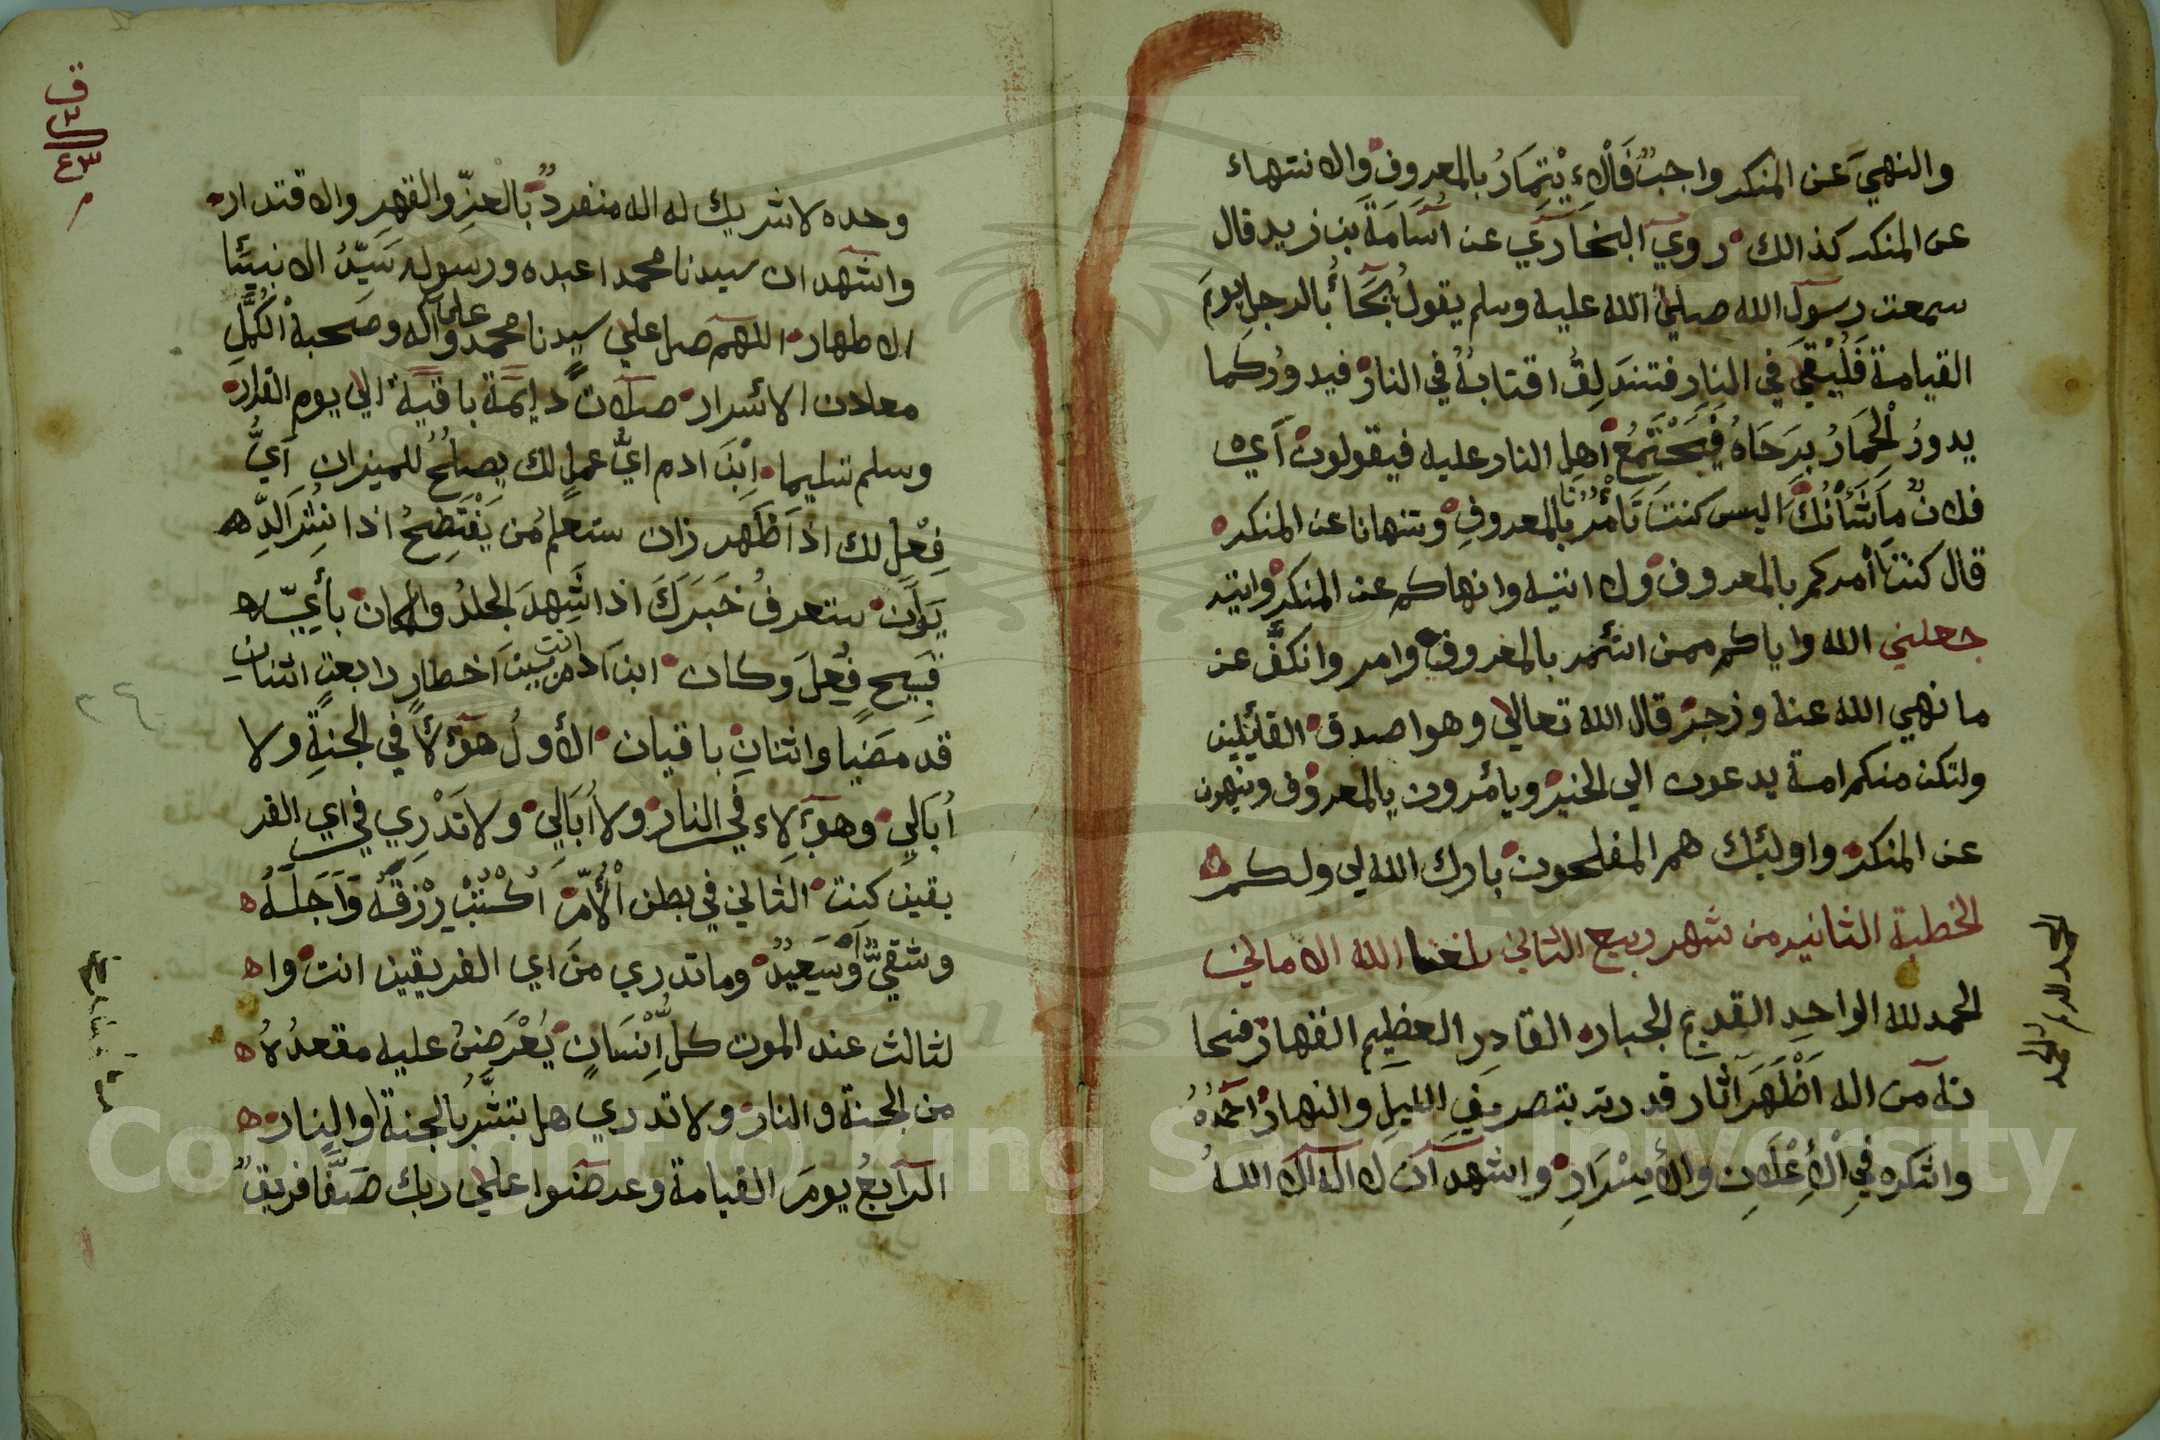 والنهيَ عن المنكر واجبٌ فَالْاءِيْتِمَارُ بالمعروف والانتهاء
عن المنكر كذالك روي البخاري عن اسَامَةَ بن زيد قال
سمعت رسول الله صلي الله عليه وسلم يقول يُجَأُ بالرجل يومَ
القيامة فَلُيْقَي في النار فتندَلِقُ اقتابهُ في النار فيدورُ كما
يدورُ الْحِمَارُ برَحَاهُ فَيَجْتَمِعُ اهل النار عليه فيقولون أي
فلانٌ مَا شَأْنُكَ اليس كنتَ تَأمُرُنَا بالمعروفِ وتنهانا عن المنكر
قال كنت أمركم بالمعروف ولا اتيه وانهاكم عن المنكر واتيه
جعلني الله واياكم ممن ائتمر بالمعروف وامر وانكفَّ عن
ما نهي الله عنه وزجر قال الله تعالي وهوا صدق القائلين
ولتكن منكم امة يدعون الي الخير ويأمرون بالمعروف وينهون
عن المنكر واولئك هم المفلحون بارك الله لي ولكم
الخطبة الثانيه من شهر ربيع الثاني بلغنا الله الاماني
الحمد لله الواحِد القديم الجبار القادِرِ العظيم القهار سبحا
نه من اله اَظْهَرَ آثار قدرته بتصريفِ الليلِ والنهار احمدُهُ
واشكره في الْأِعْلَانِ والْأِسْرَارِ واشهد ان لا اله الا اللهُ
وحده لا شريك له اله منفردٌ بالعزِّ والقهرِ والاقتدار
واشهد ان سيدنا محمدا عبده ورسوله سَيِّدُ الانبئَا
الاطهار اللهم صل علي سيدنا محمد وعلي آله وصحبهْ الكُمَّلِ
معادن الأسرار صلاتً دايمَةً باقيةً الي يوم القرار
وسلم تسليما اِبْنَ ادم ايُّ عملٍ لك يصلحُ للميزان اَيُّ
فِعْلٍ لك اذا ظَهَر زان ستعلم مُن يَفْتَضِحُ اذا نُشِرَ الدِّ
يوَان ستعرفُ خَبَرَكَ اذا شَهِدَ الجلدُ والمكان بأيِّ
قبيحٍ فُعِلَ وكان ابن ادم انت بين اخطارٍ رابعةٍ اثنان
قد مضيا واثنانِ باقيان الأولُ هؤلاءِ في الجنةِ ولا
اُبَالي وهؤلاءِ في النار ولا اُبَالي ولا تَدْرِي في اي الفر
يقين كنت الثاني في بطن الْأُمِّ اُكْتُبْ رِزْقَهُ وَاَجَلَهُ
وشقيٌّ اَوْ سَعِيدٌ وما تدري من اي الفريقين انت وا
لثالث عند الموت كلُّ اِنْسَانٍ يُعْرَضُ عليه مقعدُهُ
من الجنة والنار ولا تدري هل تبشَّرُ بالجنة اوالنار
الرَابِعُ يومَ القيامة وعرضوا علي ربك صَفًّا فريقٌ